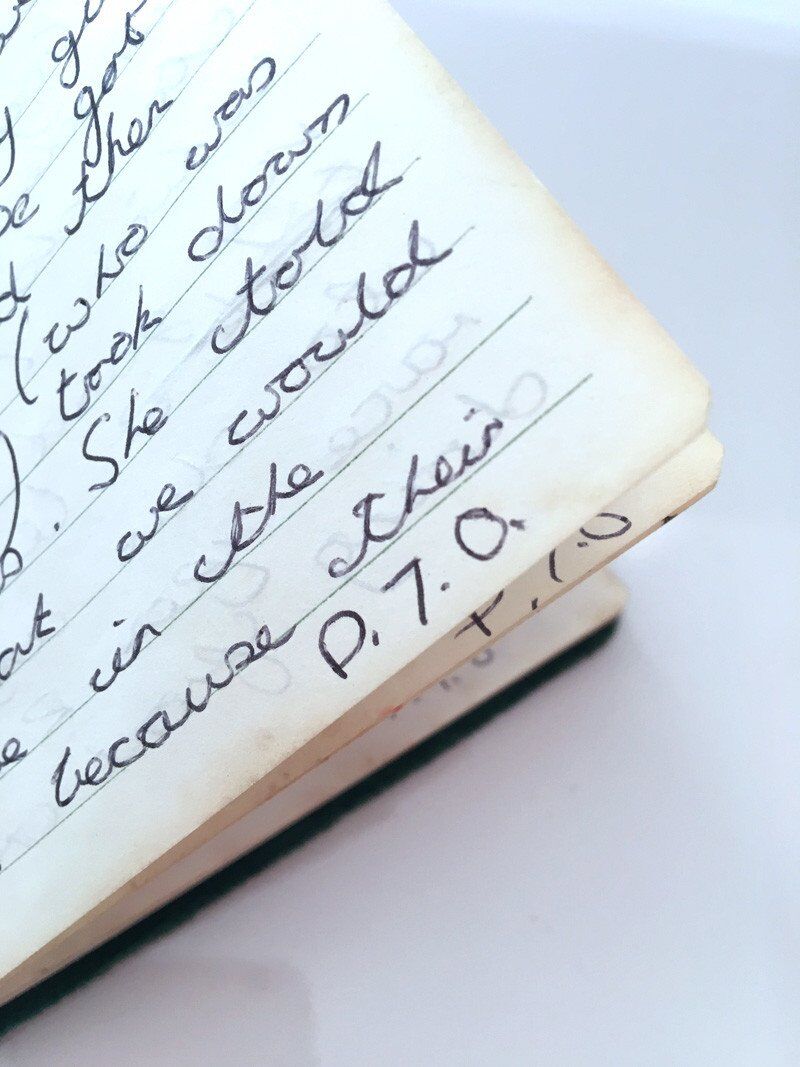 got
then
(who was
) took down
. She told
we would
in the
because their
P.T.O.
P.T.O